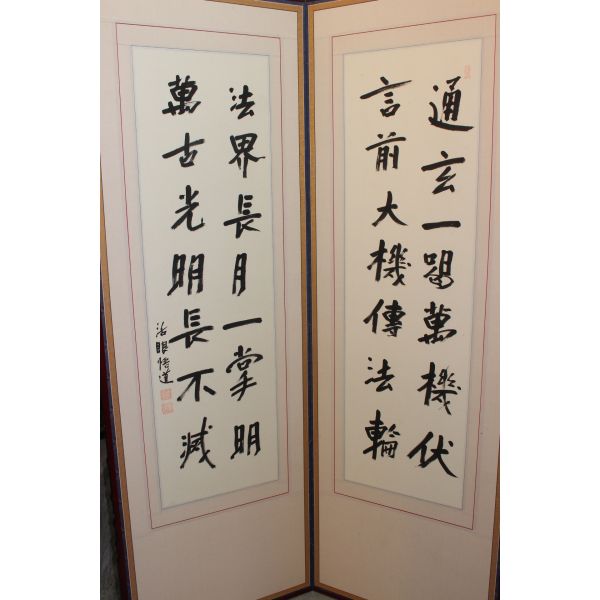 通玄一喝萬機伏
言前大機傳法輪
法界長月一掌明
萬古光明長不滅